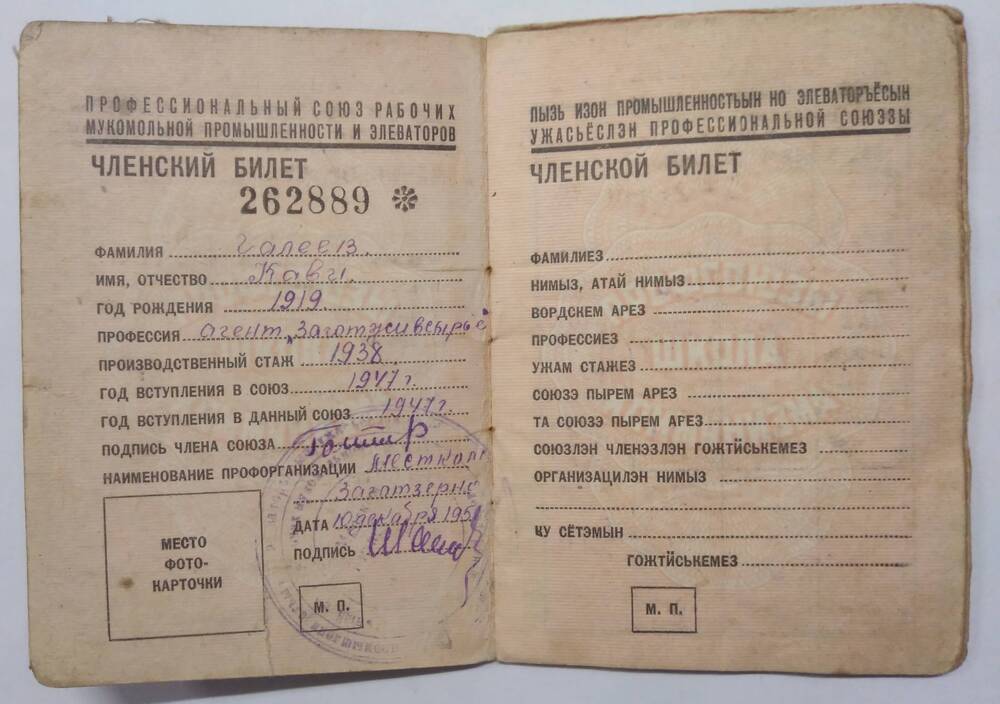 ПРОФЕССИОНАЛЬНЫЙ СОЮЗ РАБОЧИХ
МУКОМОЛЬНОЙ ПРОМЫШЛЕННОСТИ И ЭЛЕВАТОРОВ
ЧЛЕНСКИЙ БИЛЕТ
262889
ФАМИЛИЯ Галеев
ИМЯ, ОТЧЕСТВО Кави
ГОД РОЖДЕНИЯ 1919
ПРОФЕССИЯ агент „Заготживсырьё
ПРОИЗВОДСТВЕННЫЙ СТАЖ 1938
ГОД ВСТУПЛЕНИЯ В СОЮЗ 1947 г.
ГОД ВСТУПЛЕНИЯ В ДАННЫЙ СОЮЗ 1947 г.
ПОДПИСЬ ЧЛЕНА СОЮЗА
НАИМЕНОВАНИЕ ПРОФОРГАНИЗАЦИИ Местком
Заготзерно
ДАТА 10 декабря 195
ПОДПИСЬ
МЕСТО
ФОТО-
КАРТОЧКИ
М. П.
ПЫЗЬ ИЗОН ПРОМЫШЛЕННОСТЬЫН НО ЭЛЕВАТОРЪЁСЫН
УЖАСЬЁСЛЭН ПРОФЕССИОНАЛЬНОЙ СОЮЗЗЫ
ЧЛЕНСКОЙ БИЛЕТ
ФАМИЛИЕЗ
НИМЫЗ, АТАЙ НИМЫЗ
ВОРДСКЕМ АРЕЗ
ПРОФЕССИЕЗ
УЖАМ СТАЖЕЗ
СОЮЗЭ ПЫРЕМ АРЕЗ
ТА СОЮЗЭ ПЫРЕМ АРЕЗ
СОЮЗЛЭН ЧЛЕНЭЗЛЭН ГОЖТӤСЬКЕМЕЗ
ОРГАНИЗАЦИЛЭН НИМЫЗ
КУ СЁТЭМЫН
ГОЖТӤСЬКЕМЕЗ
М. П.